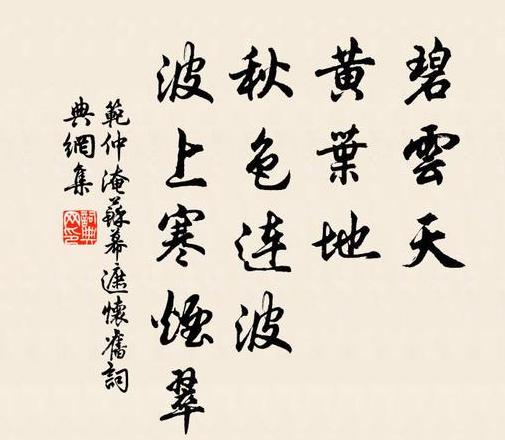 碧雲天
黄葉地
秋色連波
波上寒煙翠
範仲淹蘇幕遮懷舊詞
典網集
詞典
网印